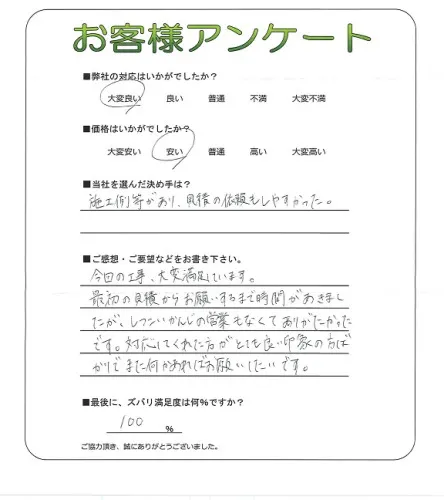 お客様アンケート
■弊社の対応はいかがでしたか？
大変良い　良い　普通　不満　大変不満
■価格はいかがでしたか？
大変安い　安い　普通　高い　大変高い
■当社を選んだ決め手は？
施工例等があり、見積の依頼もしやすかった。
■ご感想・ご要望などをお書き下さい。
今回の工事、大変満足しています。
最初の見積からお願いするまで時間があきまし
たが、しつこいかんじの営業もなくてありがたかった
です。対応してくれた方がとても良い印象の方ば
かりでまた何かあればお願いしたいです。
■最後に、ズバリ満足度は何%ですか？
100 %
ご協力頂き、誠にありがとうございました。